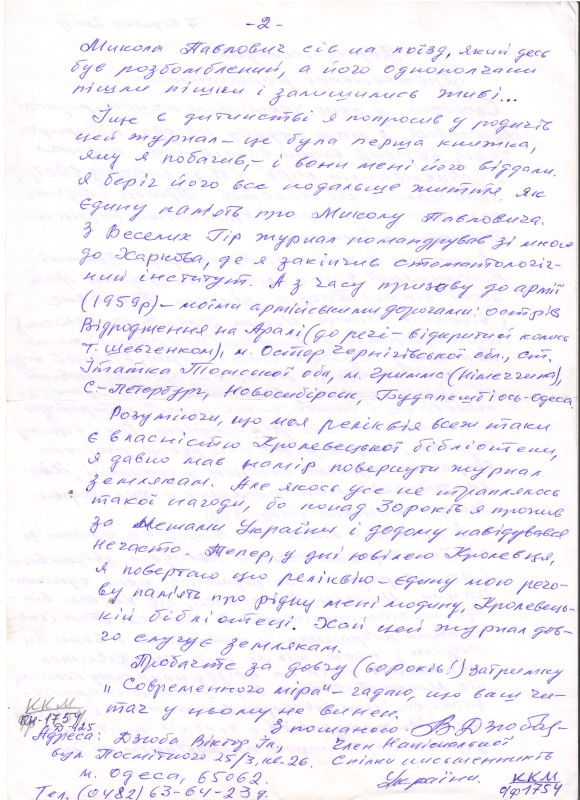 - 2 -
Микола Павлович сів на поїзд, який десь
був розбомблений, а його однополчани
пішли пішки і залишились живі...
Іще в дитинстві я попросив у родичів
цей журнал – це була перша книжка,
яку я побачив, – і вони мені його віддали.
Я беріг його все подальше життя як
єдину пам'ять про Миколу Павловича.
З Веселих Гір журнал помандрував зі мною
до Харкова, де я закінчив стоматологіч-
ний інститут. А з часу призову до армії
(1959р) – моїми армійськими дорогами: острів
Відродження на Аралі (до речі – відкритий колись
Т. Шевченком), м. Остер Чернігівської обл., ст.
Ітатка Томської обл, м. Гримма (Німеччина),
С-Петербург, Новосибірськ, Будапешт і ось-Одеса.
Розуміючи, що моя реліквія все ж таки
є власністю Кролевецької бібліотеки,
я давно мав намір повернути журнал
землякам. Але якось усе не траплялось
такої нагоди, бо понад 30 років я прожив
за межами України і додому навідувався
нечасто. Тепер, у дні ювілею Кролевця,
я повертаю цю реліквію – єдину мою речо-
ву пам'ять про рідну мені людину, Кролевець-
кій бібліотеці. Хай цей журнал дов-
го служує землякам.
Пробачте за довгу (60 років!) затримку
„Современного міра" – гадаю, що ваш чи-
тач у цьому не винен.
З пошаною
ККМ
КН-1754
Д-425
Адреса: Дзюба Віктор Гл,
Член Національної
вул Посмітного 25/3, кв. 26.
Спілки письменників
м. Одеса, 65062.
України.
Тел. (0482) 63-64-23 д.
ККМ
о/ф 1754